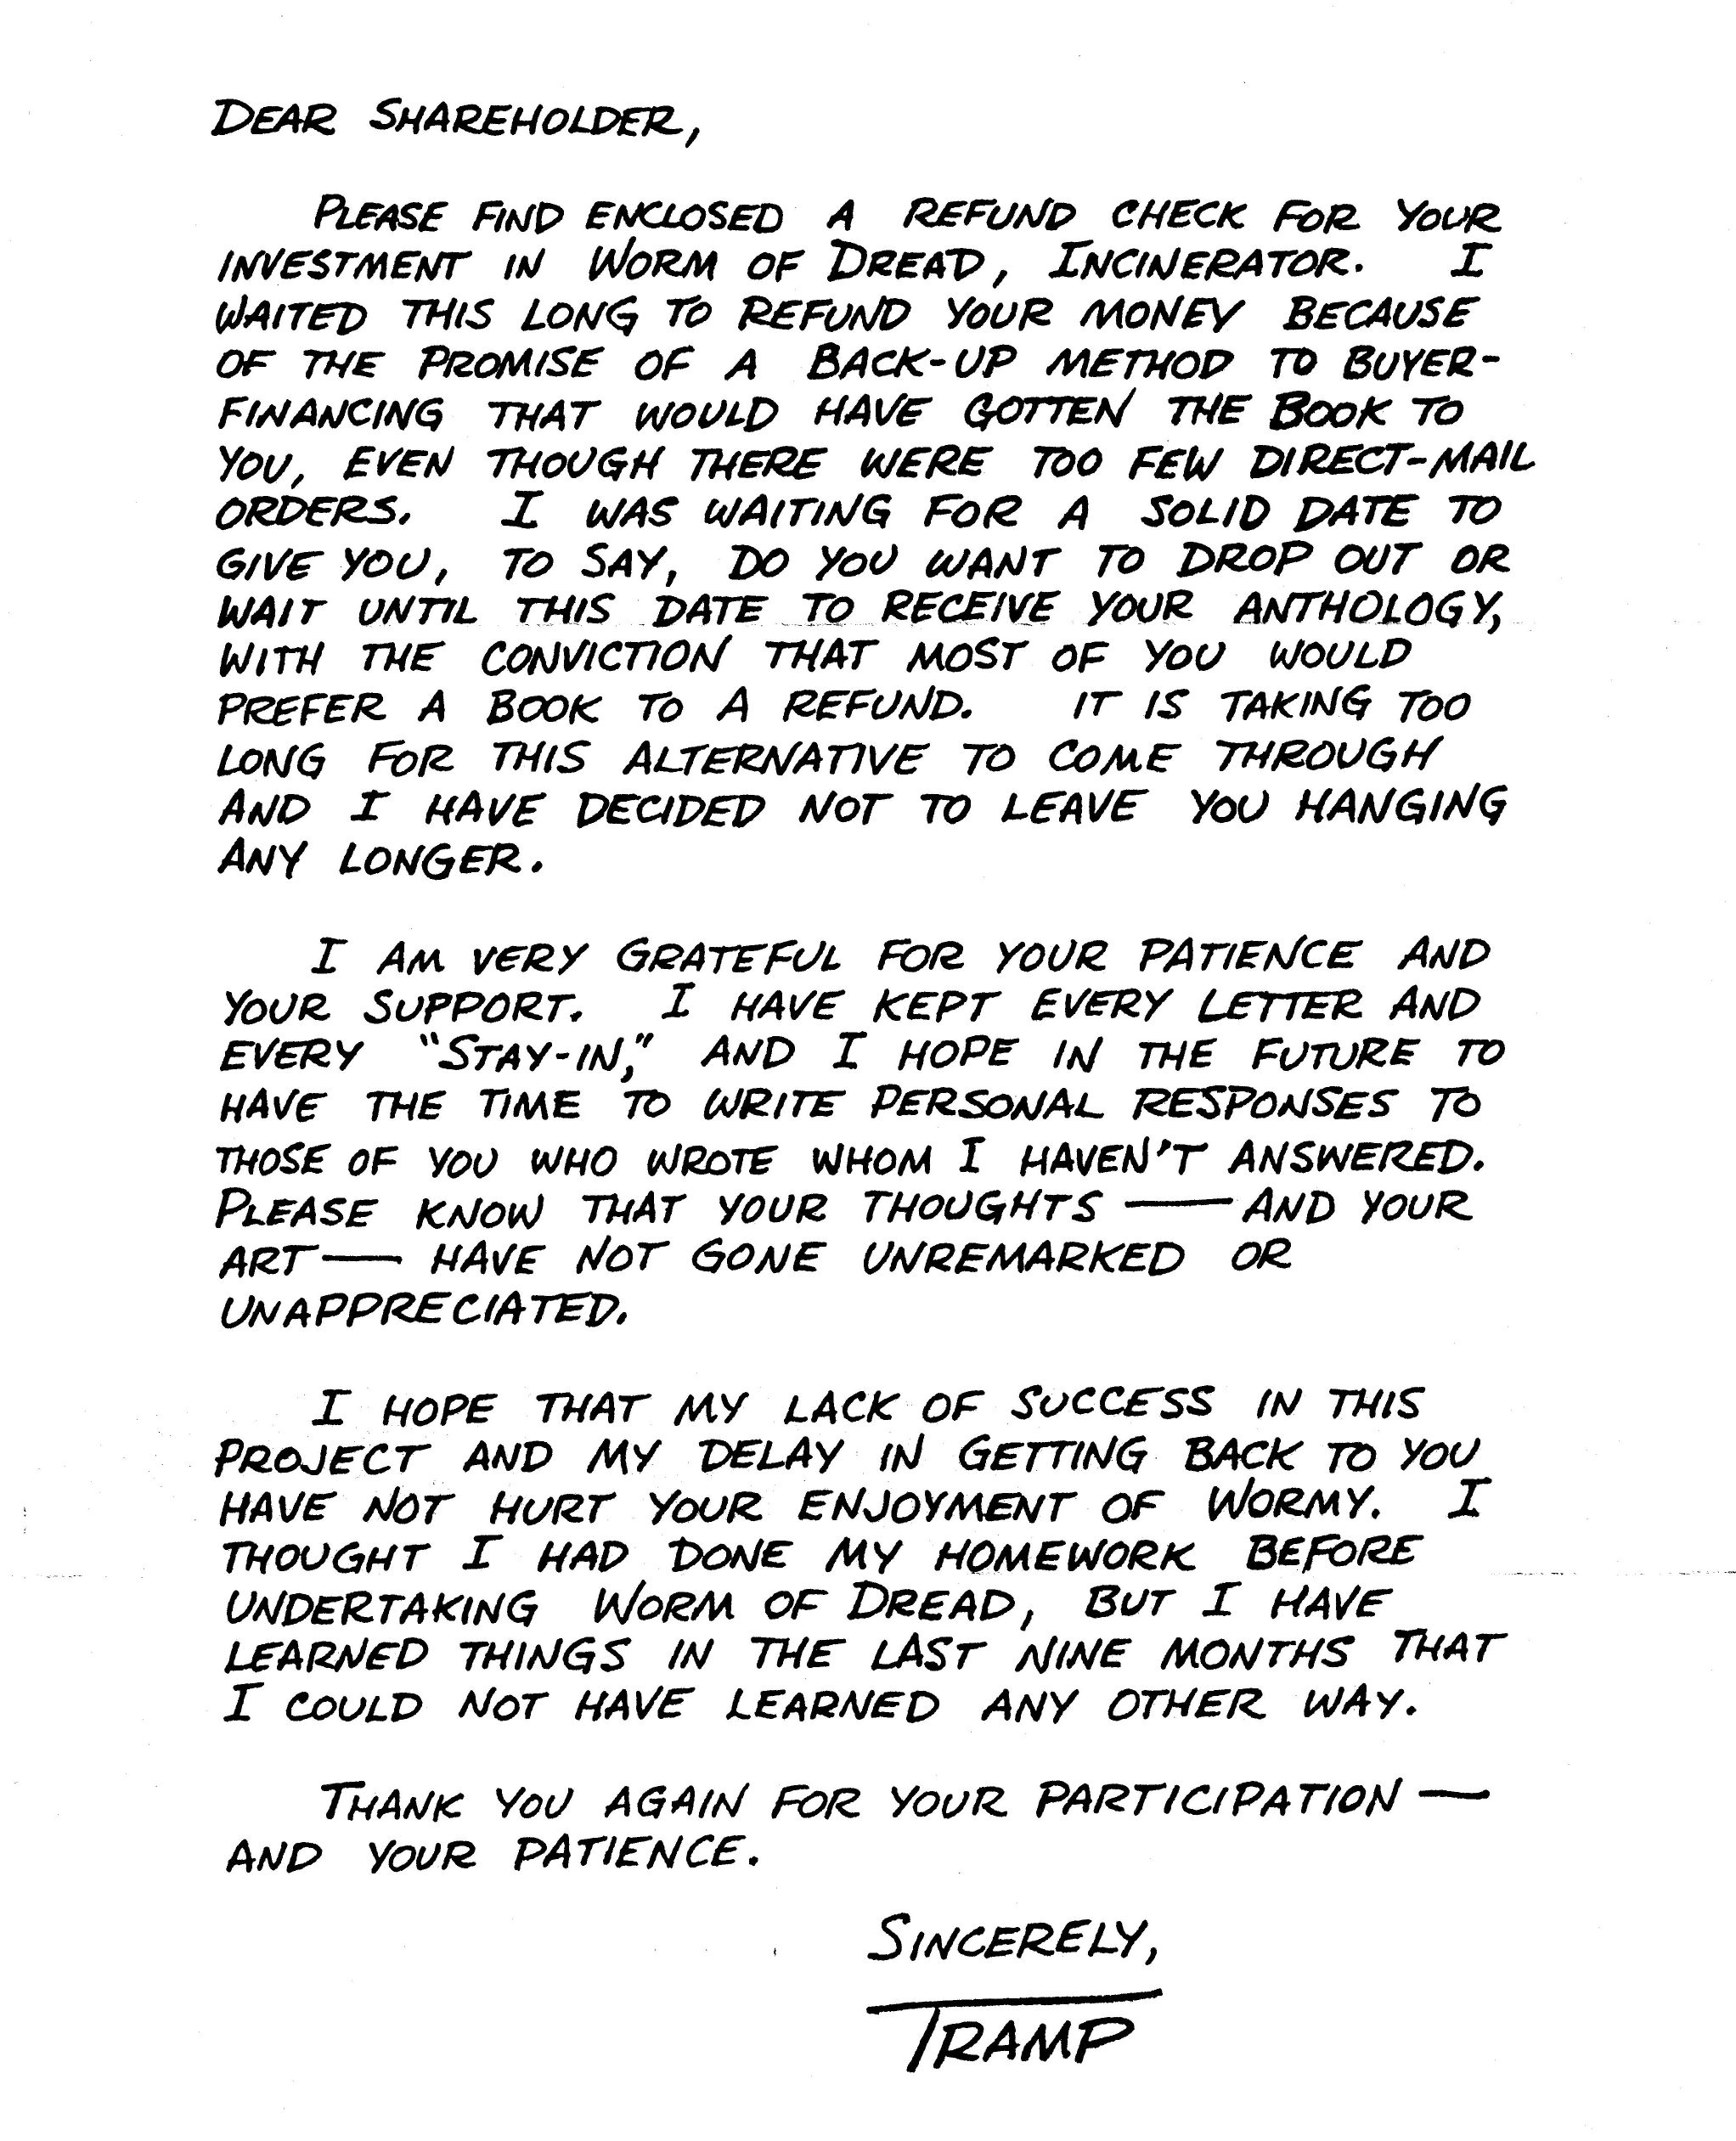 DEAR SHAREHOLDER,
PLEASE FIND ENCLOSED A REFUND CHECK FOR YOUR
INVESTMENT IN WORM OF DREAD, INCINERATOR. I
WAITED THIS LONG TO REFUND YOUR MONEY BECAUSE
OF THE PROMISE OF A BACK-UP METHOD TO BUYER-
FINANCING THAT WOULD HAVE GOTTEN THE BOOK TO
YOU, EVEN THOUGH THERE WERE TOO FEW DIRECT-MAIL
ORDERS. I WAS WAITING FOR A SOLID DATE TO
GIVE YOU, TO SAY, DO YOU WANT TO DROP OUT OR
WAIT UNTIL THIS DATE TO RECEIVE YOUR ANTHOLOGY,
WITH THE CONVICTION THAT MOST OF YOU WOULD
PREFER A BOOK TO A REFUND. IT IS TAKING TOO
LONG FOR THIS ALTERNATIVE TO COME THROUGH
AND I HAVE DECIDED NOT TO LEAVE YOU HANGING
ANY LONGER.
I AM VERY GRATEFUL FOR YOUR PATIENCE AND
YOUR SUPPORT. I HAVE KEPT EVERY LETTER AND
EVERY "STAY-IN," AND I HOPE IN THE FUTURE TO
HAVE THE TIME TO WRITE PERSONAL RESPONSES TO
THOSE OF YOU WHO WROTE WHOM I HAVEN'T ANSWERED.
PLEASE KNOW THAT YOUR THOUGHTS — AND YOUR
ART — HAVE NOT GONE UNREMARKED OR
UNAPPRECIATED.
I HOPE THAT MY LACK OF SUCCESS IN THIS
PROJECT AND MY DELAY IN GETTING BACK TO YOU
HAVE NOT HURT YOUR ENJOYMENT OF WORMY. I
THOUGHT I HAD DONE MY HOMEWORK BEFORE
UNDERTAKING WORM OF DREAD, BUT I HAVE
LEARNED THINGS IN THE LAST NINE MONTHS THAT
I COULD NOT HAVE LEARNED ANY OTHER WAY.
THANK YOU AGAIN FOR YOUR PARTICIPATION —
AND YOUR PATIENCE.
SINCERELY,
TRAMP